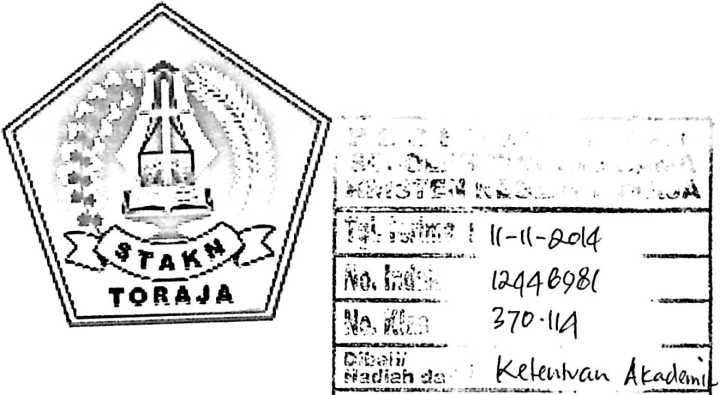 STAKN
TORAJA
KRISTEN NEGERI TORAJA
Tgl. Terima : 11-11-2014
No. Induk 12446981
No. Klas 370.114
Dibeli/
Hadiah da : Ketentuan Akademik